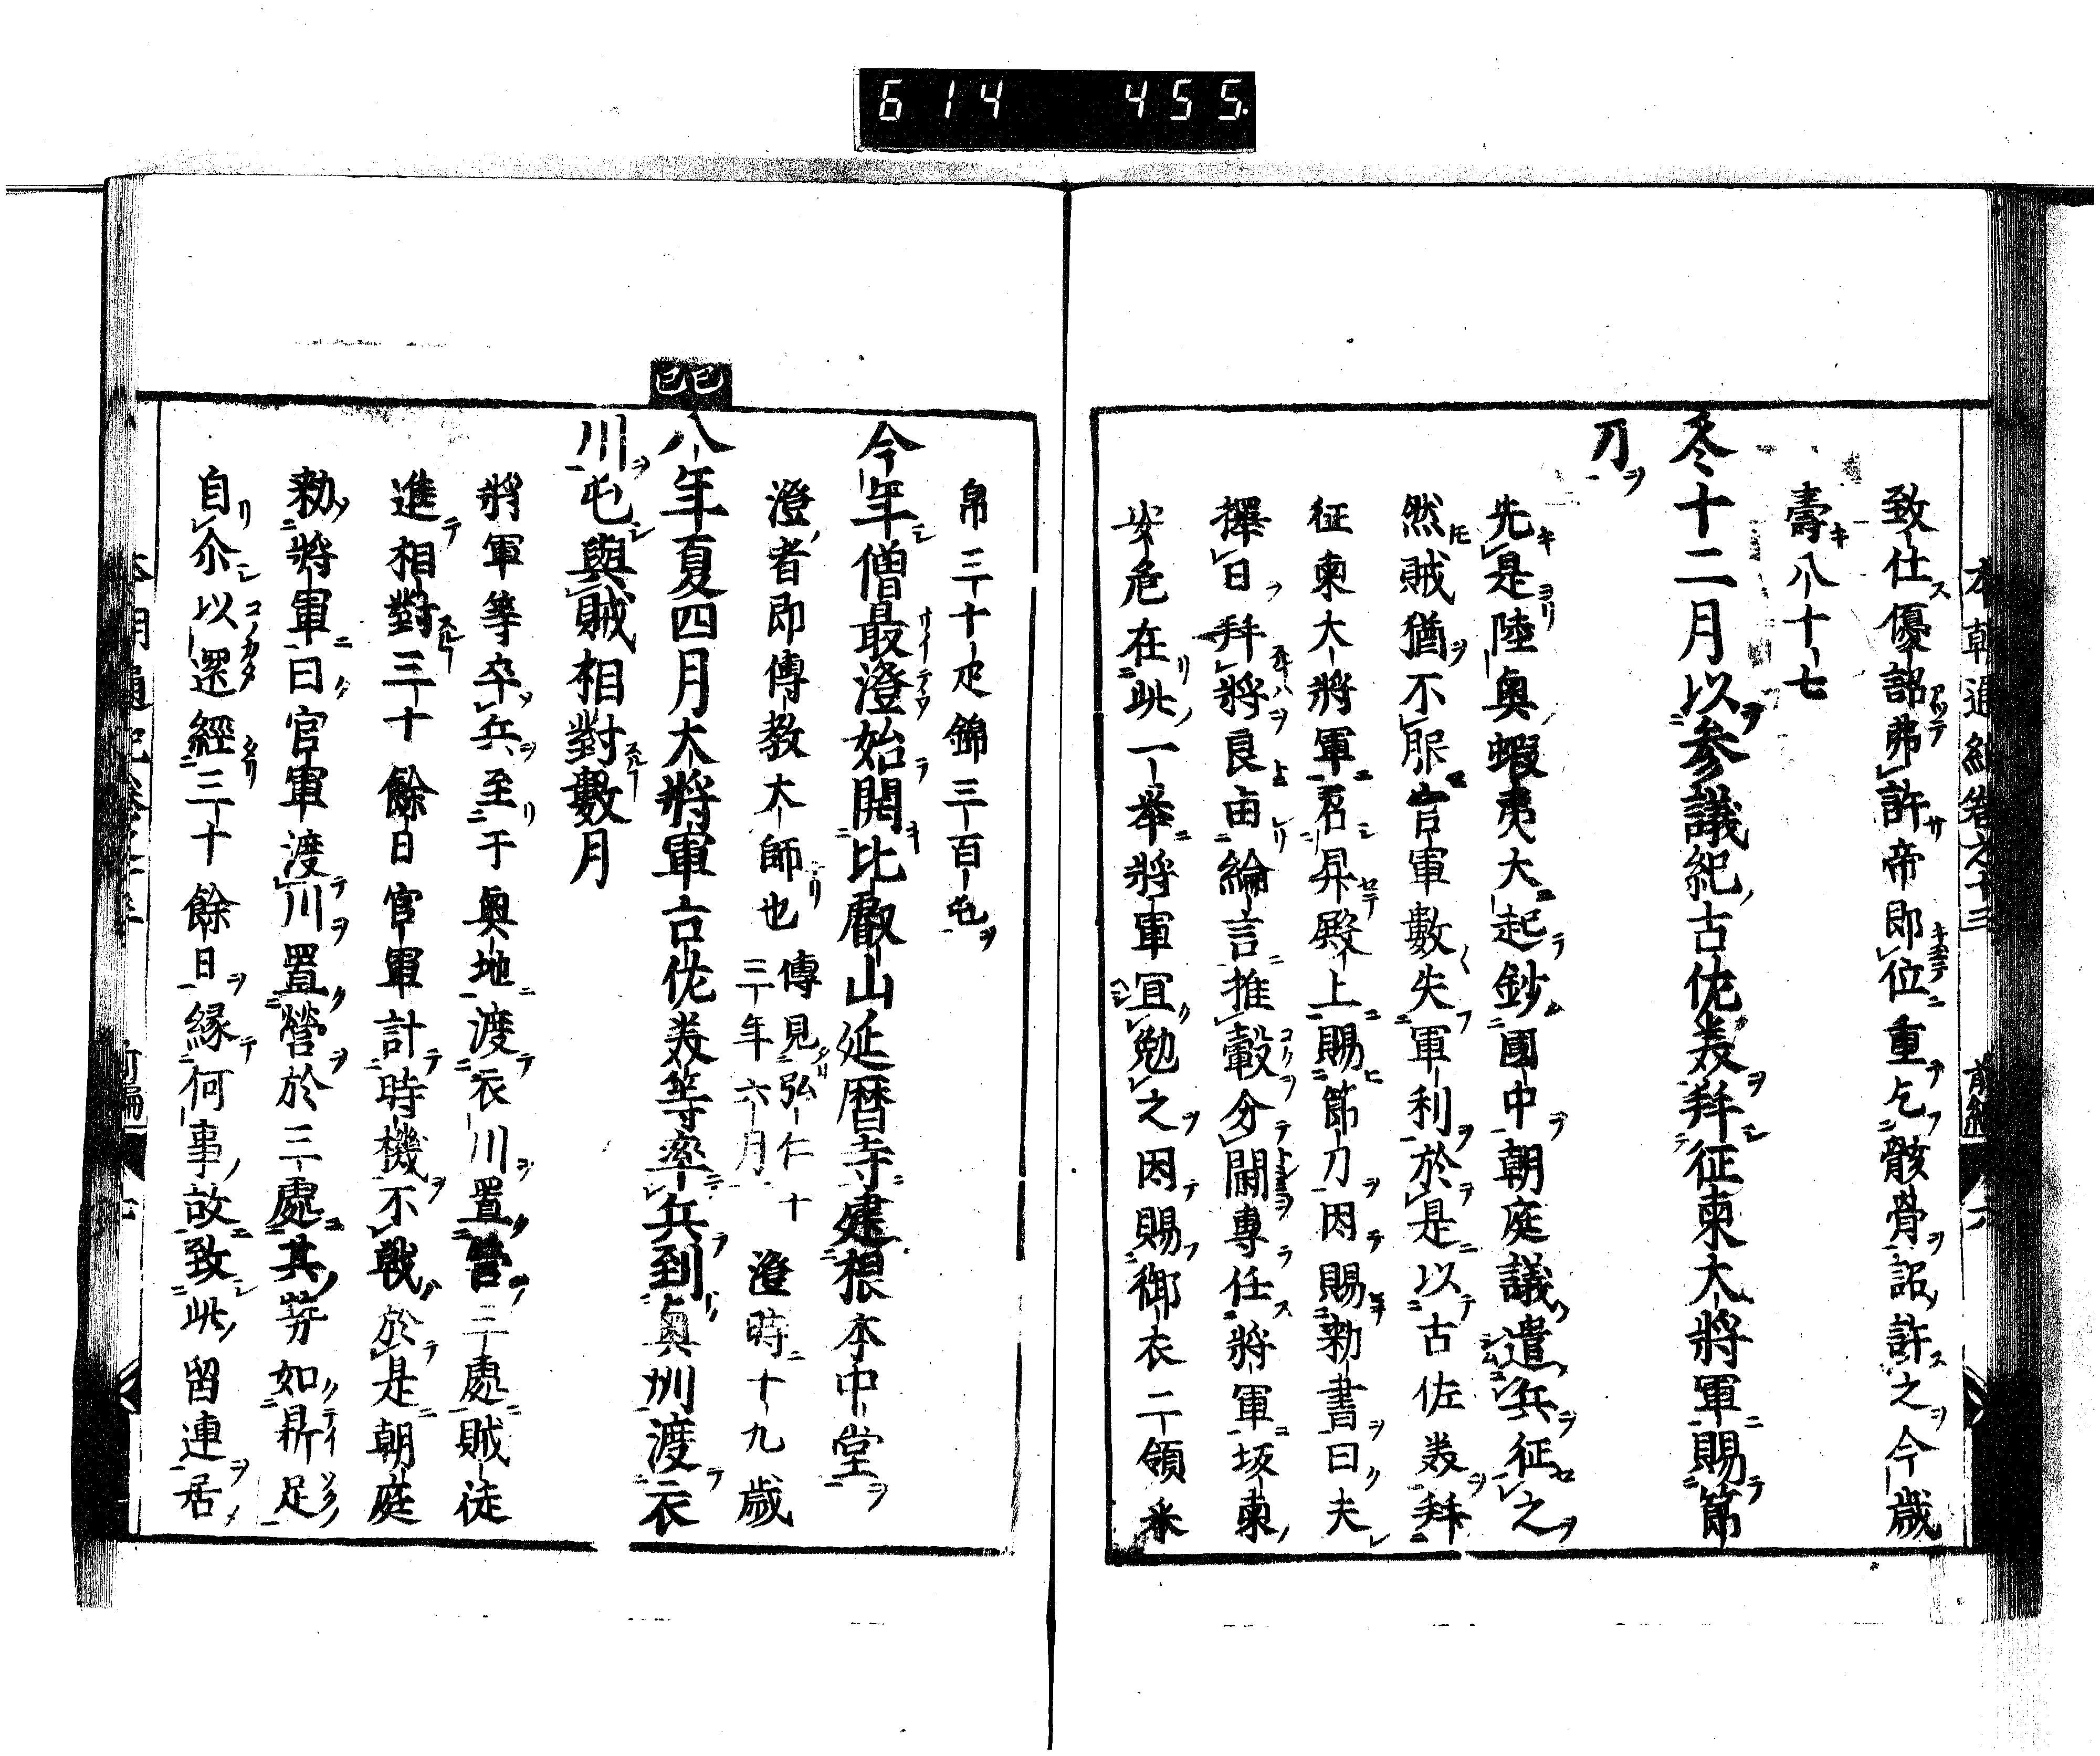 614 455.
本朝通紀卷之十三 前編 六
致仕優詔弗許帝即位重乞骸骨詔許之今歳
壽八十七
冬十二月以參議紀古佐美拜征東大將軍賜節
刀
先是陸奥蝦夷大起鈔國中朝庭議遣兵征之
然賊猶不服官軍數失軍利於是以古佐美拜
征東大將軍召昇殿上賜節刀因賜勅書曰夫
擇日拜將良由綸言推轂分閫專任將軍坂東
安危在此一舉將軍宜勉之因賜御衣二領采
帛三十疋錦三百屯
今年僧最澄始開比叡山延暦寺建根本中堂
澄者即傳教大師也 傳見弘仁十三年六月 澄時十九歳
己巳
八年夏四月大將軍古佐美等率兵到奥州渡衣
川屯與賊相對數月
將軍等卒兵至于奥地渡衣川置營三處賊徒
進相對三十餘日官軍計時機不戰於是朝庭
勅將軍曰官軍渡川置營於三處其勢如鼎足
自尒以還經三十餘日縁何事故致此留連居